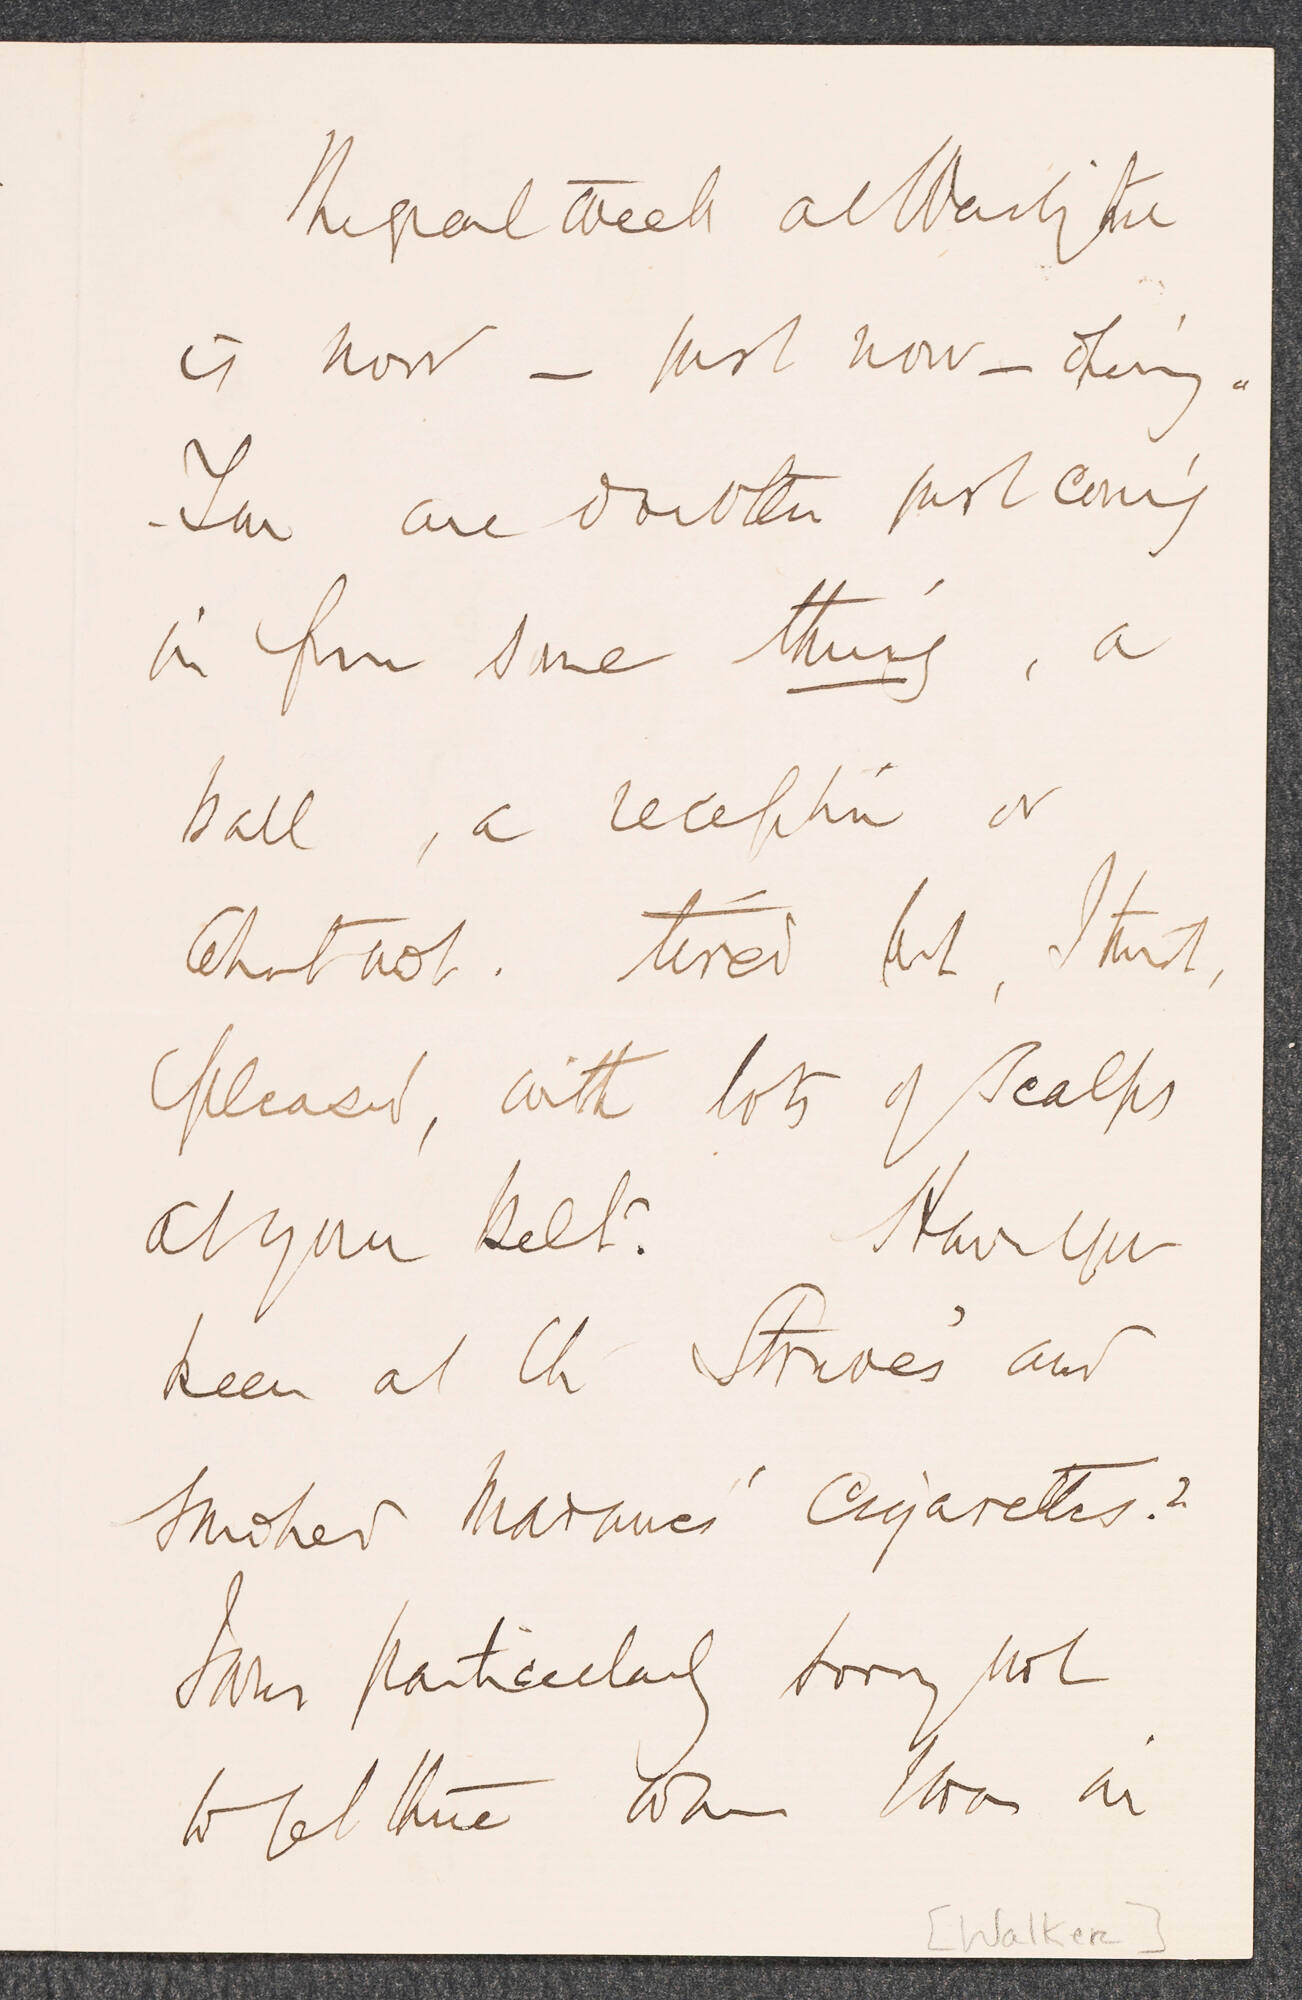 The great week at Washington
is now – just now – dying.
– You are doubtless just coming
in from some thing, a
ball, a reception or
what not. tired but, I trust,
pleased, with lots of scalps
at your belt? Have you
been at the Struve's and
smoked Madame's cigarettes?
I was particularly sorry not
to get there when I was in
[Walker]